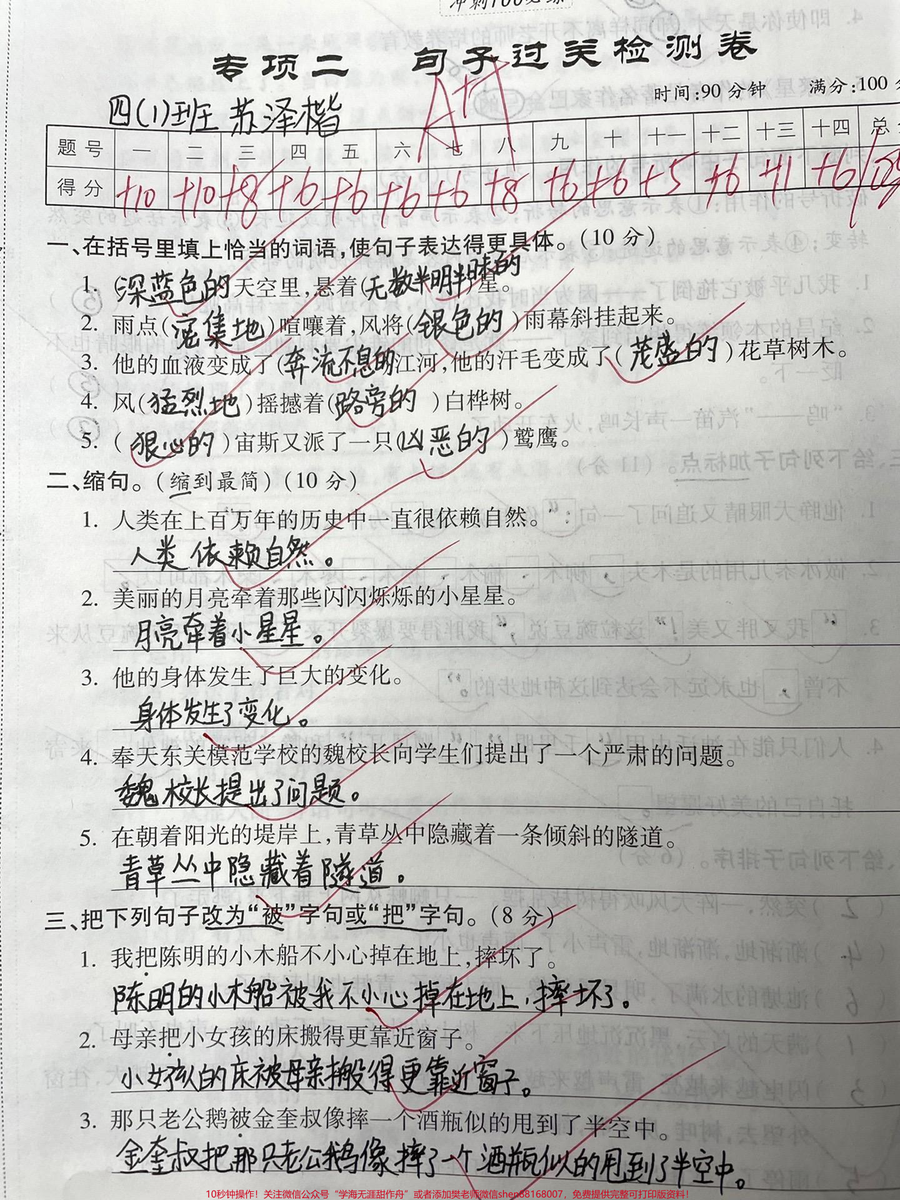 专项二 句子过关检测卷
时间:90分钟 满分:100
四(1)班 苏泽楷
A+
题号 一 二 三 四 五 六 七 八 九 十 十一 十二 十三 十四 总
得分 +10 +10 +8 +6 +6 +6 +6 +8 +6 +6 +5 +6 +11 +6
一、在括号里填上恰当的词语,使句子表达得更具体。(10分)
1. (深蓝色的)天空里,悬着(无数半明半昧的)星。
2. 雨点(密集地)喧嚷着,风将(银色的)雨幕斜挂起来。
3. 他的血液变成了(奔流不息的)江河,他的汗毛变成了(茂盛的)花草树木。
4. 风(猛烈地)摇撼着(路旁的)白桦树。
5. (狠心的)宙斯又派了一只(凶恶的)鹫鹰。
二、缩句。(缩到最简)(10分)
1. 人类在上百万年的历史中一直很依赖自然。
人类依赖自然。
2. 美丽的月亮牵着那些闪闪烁烁的小星星。
月亮牵着小星星。
3. 他的身体发生了巨大的变化。
身体发生了变化。
4. 奉天东关模范学校的魏校长向学生们提出了一个严肃的问题。
魏校长提出了问题。
5. 在朝着阳光的堤岸上,青草丛中隐藏着一条倾斜的隧道。
青草丛中隐藏着隧道。
三、把下列句子改为“被”字句或“把”字句。(8分)
1. 我把陈明的小木船不小心掉在地上,摔坏了。
陈明的小木船被我不小心掉在地上,摔坏了。
2. 母亲把小女孩的床搬得更靠近窗子。
小女孩的床被母亲搬得更靠近窗子。
3. 那只老公鹅被金奎叔像摔一个酒瓶似的甩到了半空中。
金奎叔把那只老公鹅像摔了一个酒瓶似的甩到了半空中。
10秒钟操作！关注微信公众号“学海无涯甜作舟”或者添加樊老师微信shen68168007，免费提供完整可打印版资料！